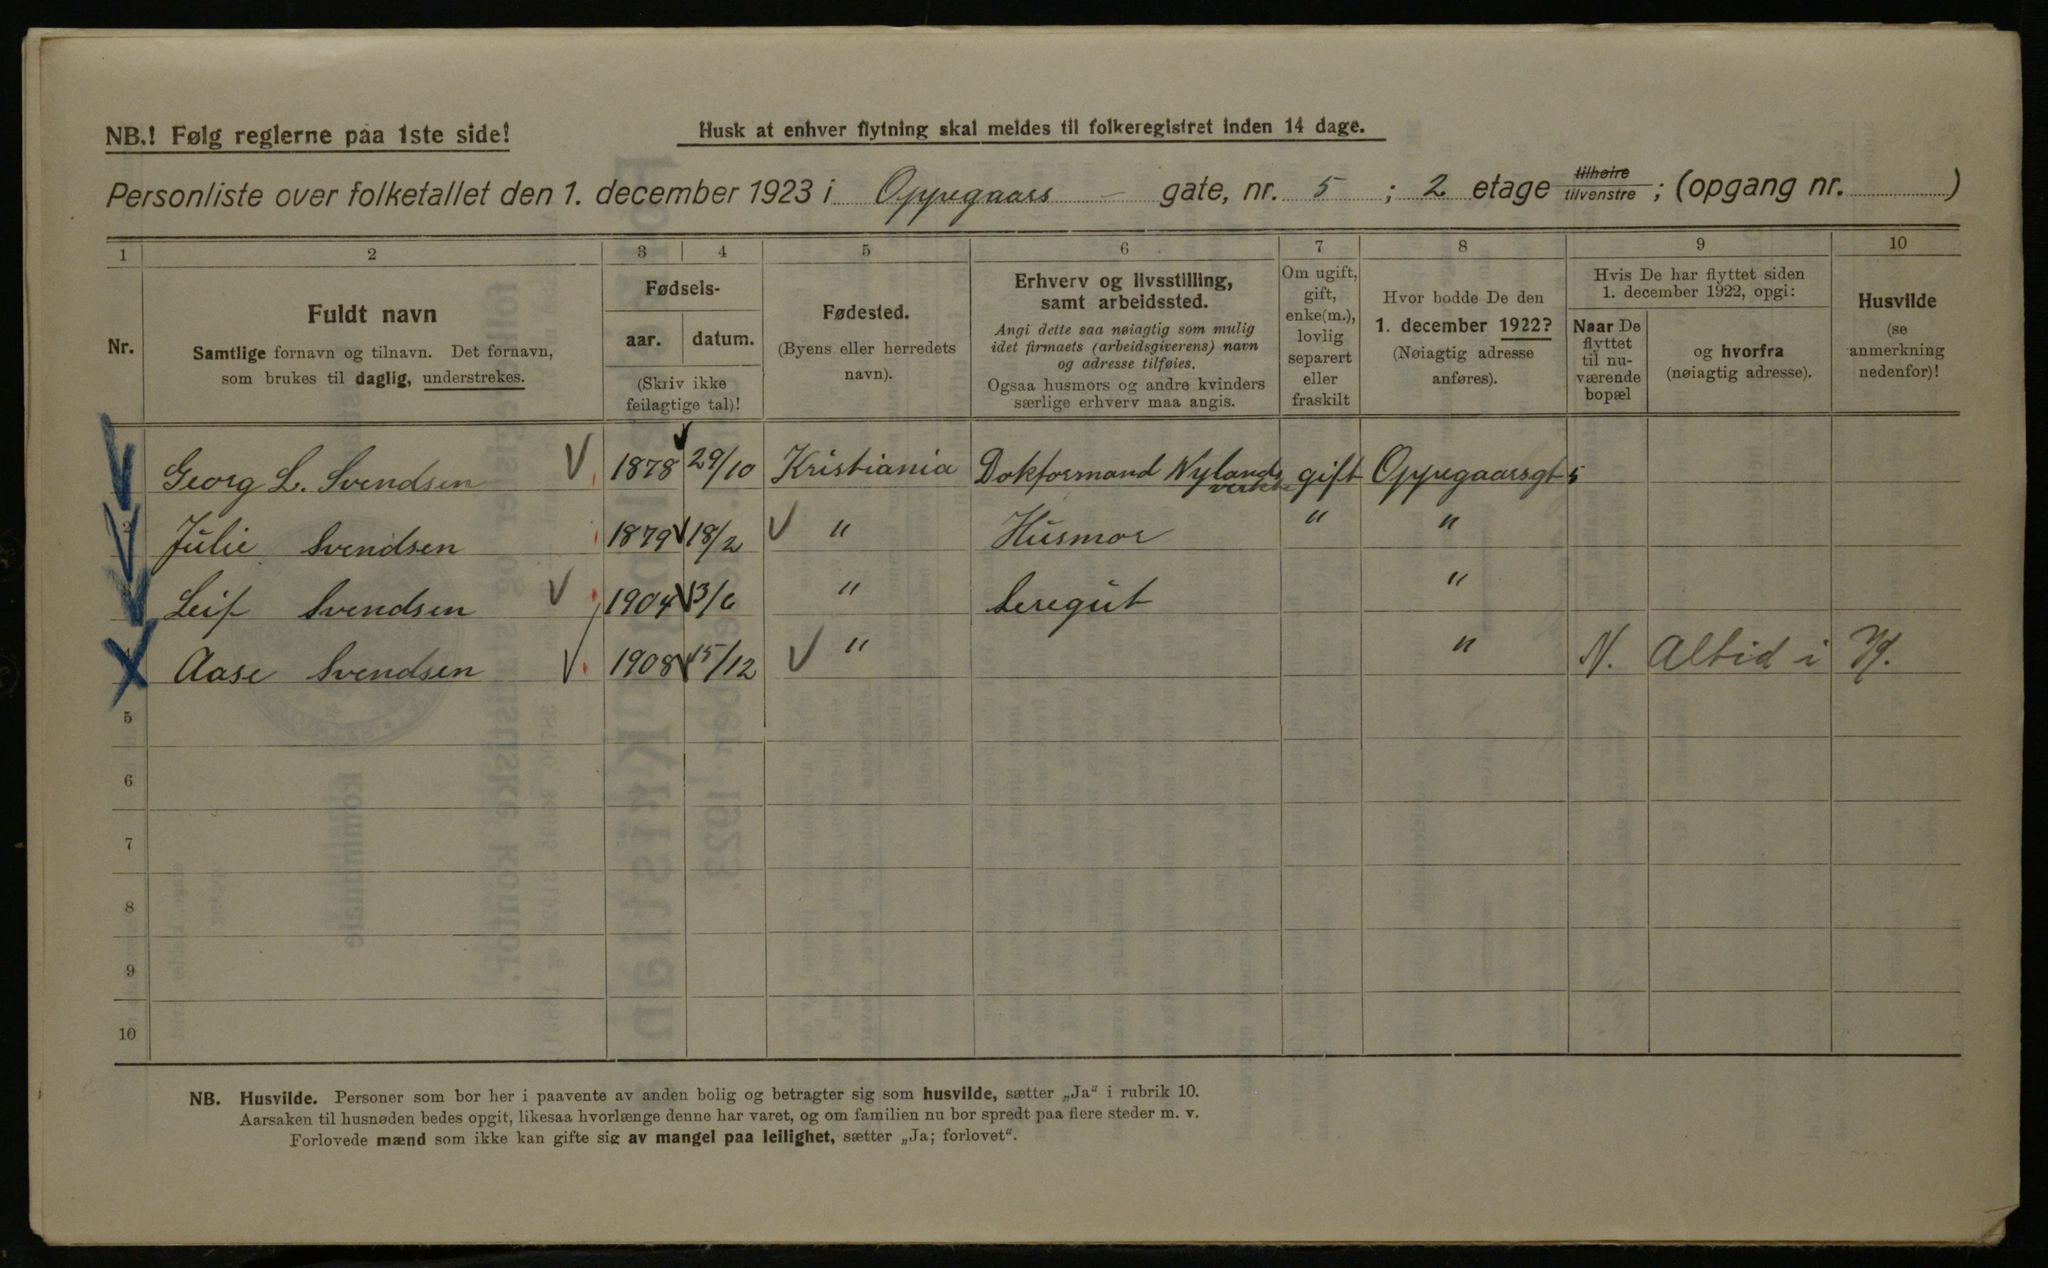 NB.! Følg reglerne paa 1ste side!
Husk at enhver flytning skal meldes til folkeregistret inden 14 dage.
Personliste over folketallet den 1. december 1923 i Oppegaars - gate, nr. 5 ; 2 etage tilhøire tilvenstre ; (opgang nr. )
1 2 3 4 5 6 7 8 9 10
Nr.
Fuldt navn
Samtlige fornavn og tilnavn. Det fornavn,
som brukes til daglig, understrekes.
Fødsels-
aar. datum.
(Skriv ikke
feilagtige tal)!
Fødested.
(Byens eller herredets
navn).
Erhverv og livsstilling,
samt arbeidssted.
Angi dette saa nøiagtig som mulig
idet firmaets (arbeidsgiverens) navn
og adresse tilføies.
Ogsaa husmors og andre kvinders
særlige erhverv maa angis.
Om ugift,
gift,
enke(m.),
lovlig
separert
eller
fraskilt
Hvor bodde De den
1. december 1922?
(Nøiagtig adresse
anføres).
Hvis De har flyttet siden
1. december 1922, opgi:
Naar De
flyttet
til nu-
værende
bopæl
og hvorfra
(nøiagtig adresse).
Husvilde
(se
anmerkning
nedenfor)!
Georg L. Svendsen 1878 29/10 Kristiania Dokformand Nylands verksted gift Oppegaarsgt 5
Julie Svendsen 1879 18/2 " Husmor " "
Leif Svendsen 1904 13/6 " Seregut "
4 Aase Svendsen 1908 15/12 " " N. Altid i N.
5
6
7
8
9
10
NB. Husvilde. Personer som bor her i paavente av anden bolig og betragter sig som husvilde, sætter „Ja“ i rubrik 10.
Aarsaken til husnøden bedes opgit, likesaa hvorlænge denne har varet, og om familien nu bor spredt paa flere steder m. v.
Forlovede mænd som ikke kan gifte sig av mangel paa leilighet, sætter „Ja; forlovet“.